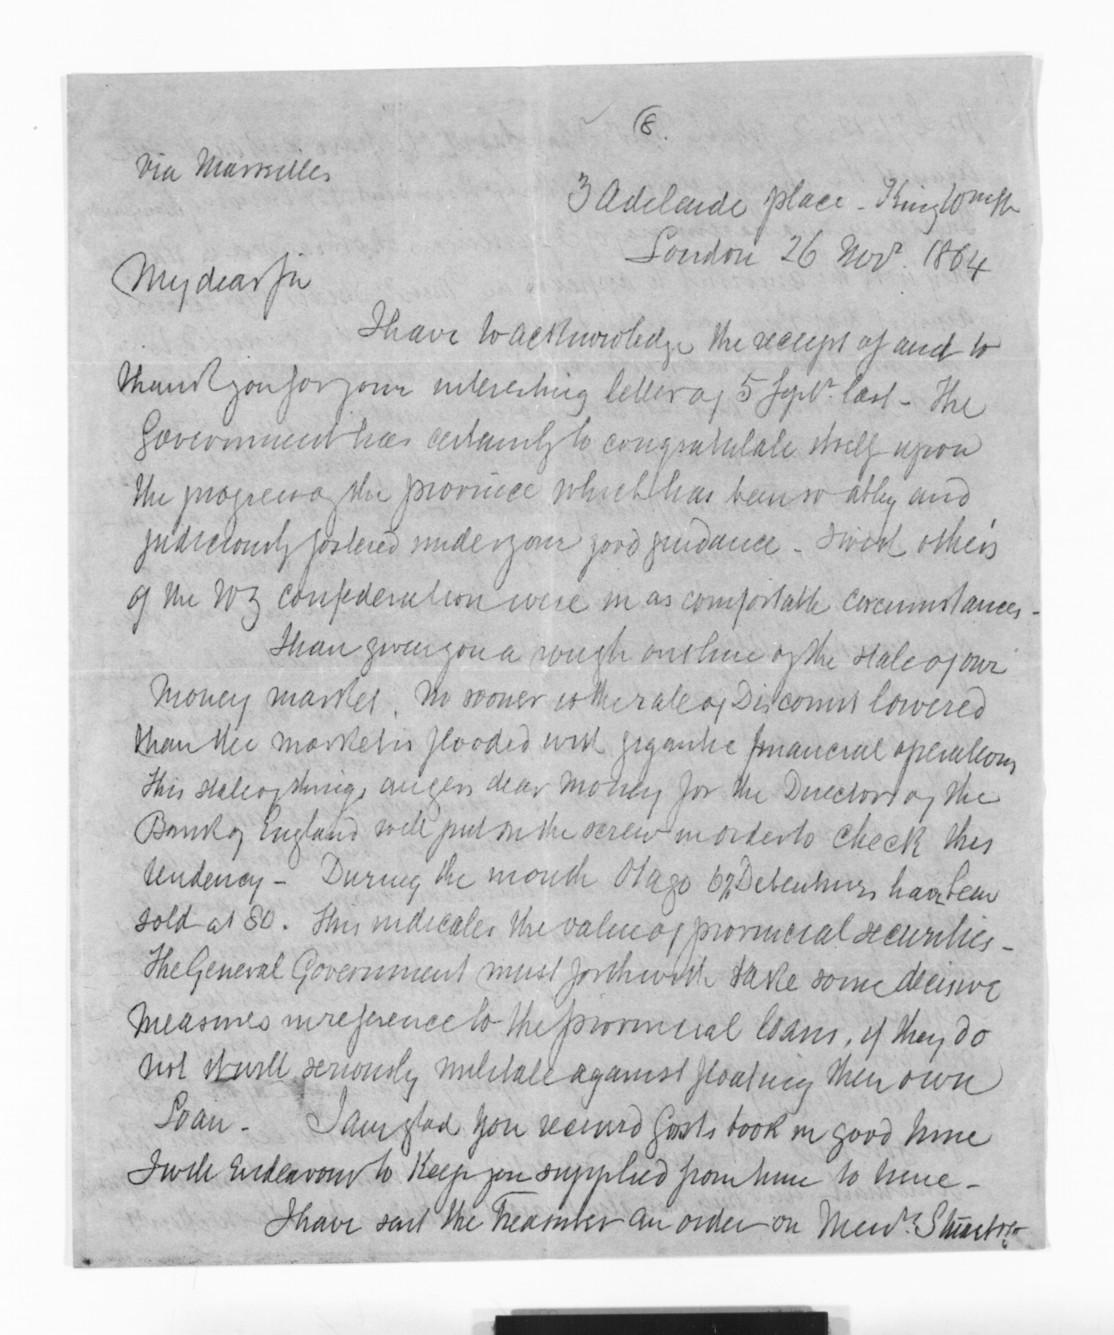 8.
Via Marseilles
3 Adelaide place - King Wm St
London 26 Novr. 1864
My dear Sir
I have to acknowledge the receipt of and to
thank you for your interesting letter of 5 Septr. last - The
Government has certainly to congratulate itself upon
the progress of the province which has been so ably and
judiciously fostered under your good guidance - I wish others
of the NZ confederation were in as comfortable circumstances -
I have given you a rough outline of the state of our
Money market. No sooner is the rate of Discount lowered
than the market is flooded with gigantic financial operations
This state of things augers dear money for the Directors of the
Bank of England will put on the screw in order to check this
tendency - During the month Otago 6% Debentures have been
sold at 80. This indicates the value of provincial securities -
The General Government must forthwith take some decisive
measures in reference to the provincial loans, if they do
not it will seriously militate against floating their own
Loan - I am glad you received book in good time
I will Endeavour to Keep you supplied from time to time -
I have sent the Treasurer an order on Messrs Stuart &Co